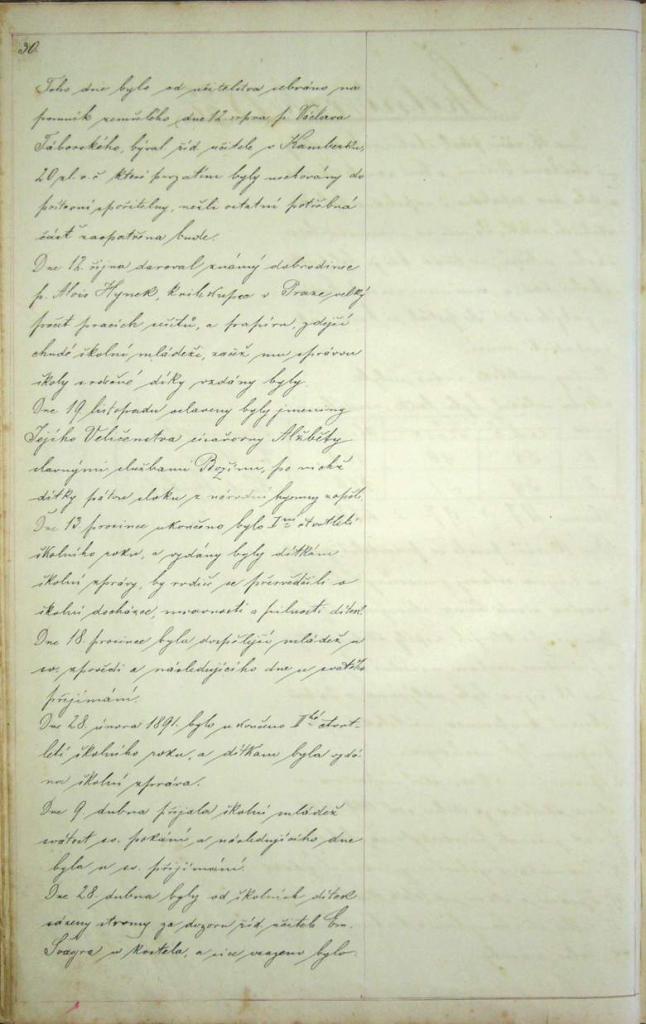 30.
Toho dne bylo od učitelstva sebráno na
pomník zemřelého dne 12. srpna p. Václava
Táborského, býval. říd. učitele v Kamberku,
20 zl. r. č. kteří prozatím byly uctovány do
poštovní spořitelny, nežli ostatní potřebná
část zaopatřena bude.
Dne 12. října daroval známý dobrodinec
p. Alois Hynek, knihkupec v Praze, velký
počet psacích sešitů, a papíru, zdejší
chudé školní mládeži, začež mu správou
školy srdečné díky vzdány byly.
Dne 19. listopadu slaveny byly jmeniny
Jejího Veličenstva císařovny Alžběty
slavnými službami Božími, po nichž
dítky pátou sloku z národní hymny zapěly.
Dne 13. prosince ukončeno bylo I. čtvrtletí
školního roku, a vydány byly dítkám
školní zprávy, by rodiče se přesvědčili o
školní docházce, mravnosti a pilnosti dítek.
Dne 18. prosince byla dospělejší mládež u
sv. zpovědi a následujícího dne u svatého
přijímání.
Dne 28. února 1891. bylo ukončeno II.hé čtvrt-
letí školního roku, a dítkám byla vydá-
na školní zpráva.
Dne 9. dubna přijala školní mládež
svátost sv. pokání a následujícího dne
byla u sv. přijímání.
Dne 28. dubna byly od školních dítek
sázeny stromy za dozoru říd. učitele Em.
Švagra u kostela, a sice vsazeno bylo